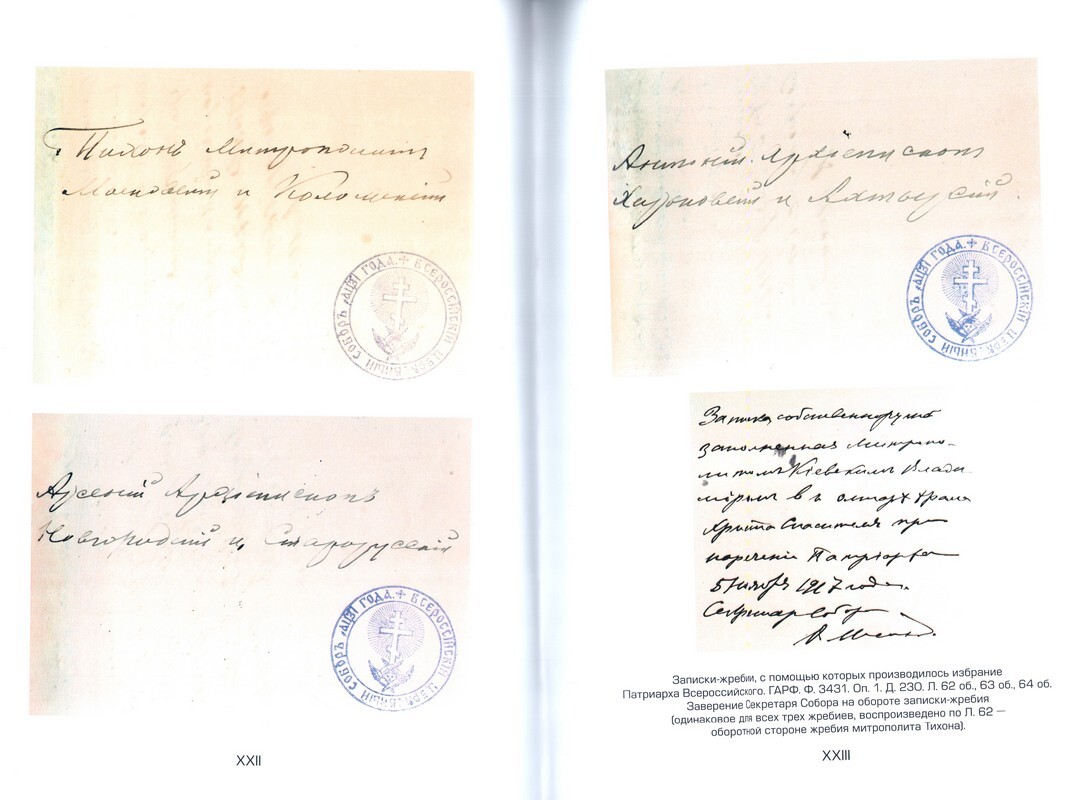 Тихонъ Митрополитъ
Московскій и Коломенскій
ВСЕРОССІЙСКІЙ ЦЕРКОВНЫЙ СОБОРЪ ГОДА
Арсеній Архіепископъ
Новгородскій и Старорусскій
ВСЕРОССІЙСКІЙ ЦЕРКОВНЫЙ СОБОРЪ ГОДА
XXII
Антоній Архіепископъ
Харьковскій и Ахтырскій.
ВСЕРОССІЙСКІЙ ЦЕРКОВНЫЙ СОБОРЪ ГОДА
Записка собственноручно
заполненная Митропо-
литомъ Кіевскимъ Влади
міромъ въ алтарѣ храма
Христа Спасителя при
нареченіи Патріарха
5 Ноября 1917 года.
Секретарь Собора
Записки-жребии, с помощью которых производилось избрание
Патриарха Всероссийского. ГАРФ. Ф. 3431. Оп. 1. Д. 230. Л. 62 об., 63 об., 64 об.
Заверение Секретаря Собора на обороте записки-жребия
(одинаковое для всех трех жребиев, воспроизведено по Л. 62 —
оборотной стороне жребия митрополита Тихона).
XXIII